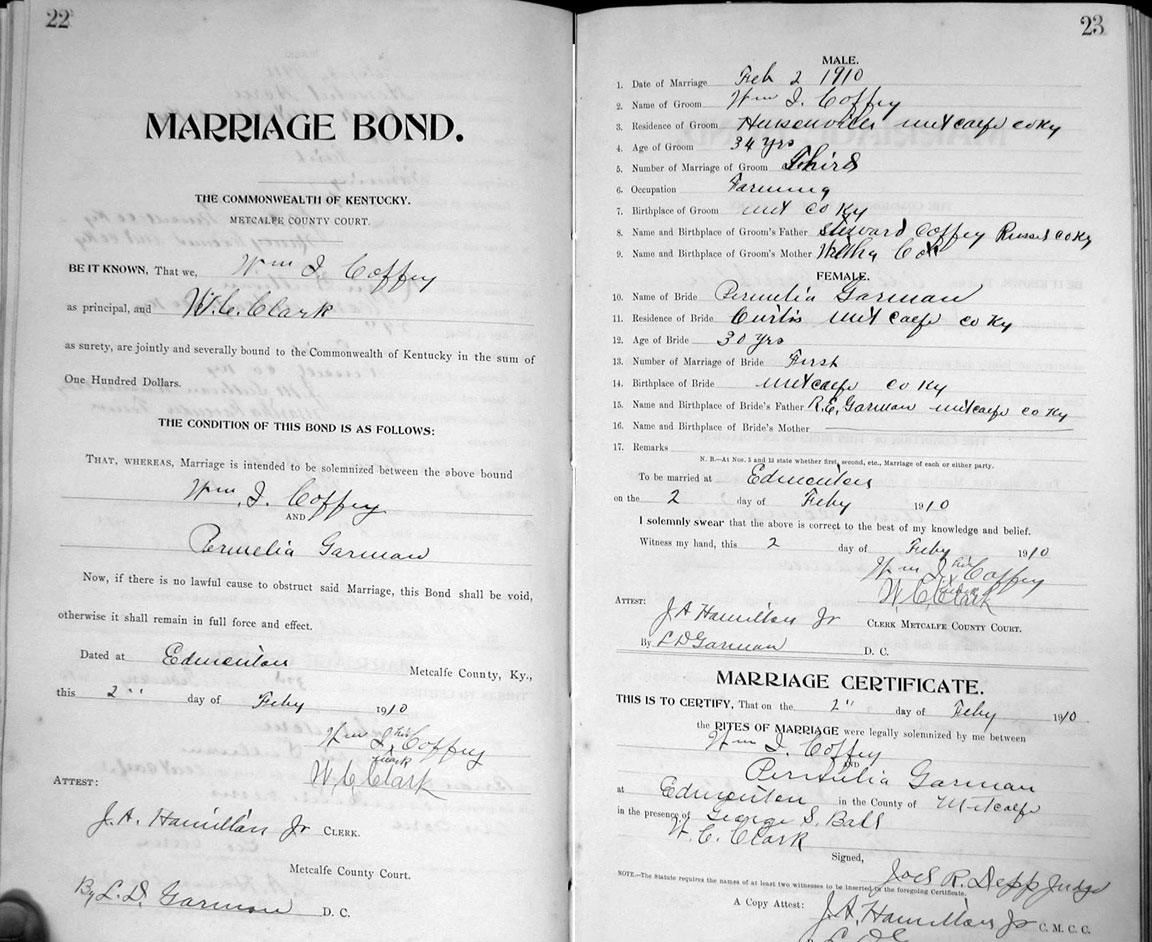 22
MARRIAGE BOND.
THE COMMONWEALTH OF KENTUCKY.
METCALFE COUNTY COURT.
BE IT KNOWN, That we, Wm I. Coffey
as principal, and W. C. Clark
as surety, are jointly and severally bound to the Commonwealth of Kentucky in the sum of
One Hundred Dollars.
THE CONDITION OF THIS BOND IS AS FOLLOWS:
THAT, WHEREAS, Marriage is intended to be solemnized between the above bound
Wm I. Coffey
AND
Permelia Garman
Now, if there is no lawful cause to obstruct said Marriage, this Bond shall be void,
otherwise it shall remain in full force and effect.
Dated at Edmonton Metcalfe County, Ky.,
this 2" day of Feby 1910
Wm I. his Coffey
mark
W. C. Clark
ATTEST:
J. A. Hamilton Jr CLERK.
Metcalfe County Court.
By L. D. Garman D. C.
23
MALE.
1. Date of Marriage Feb 2 1910
2. Name of Groom Wm I. Coffey
3. Residence of Groom Metcalfe Co Ky
4. Age of Groom 34 Yrs
5. Number of Marriage of Groom Third
6. Occupation Farming
7. Birthplace of Groom Met Co Ky
8. Name and Birthplace of Groom's Father Steward Coffey Russel Co Ky
9. Name and Birthplace of Groom's Mother Cox
FEMALE.
10. Name of Bride Permelia Garman
11. Residence of Bride Curtis Metcalfe Co Ky
12. Age of Bride 30 Yrs
13. Number of Marriage of Bride First
14. Birthplace of Bride Metcalfe Co Ky
15. Name and Birthplace of Bride's Father R. E. Garman Metcalfe Co Ky
16. Name and Birthplace of Bride's Mother
17. Remarks
N. B.—At Nos. 5 and 13 state whether first, second, etc., Marriage of each or either party.
To be married at Edmonton
on the 2 day of Feby 1910
I solemnly swear that the above is correct to the best of my knowledge and belief.
Witness my hand, this 2 day of Feby 1910
Wm I. his Coffey
mark
W. C. Clark
ATTEST:
J A Hamilton Jr CLERK METCALFE COUNTY COURT.
By L D Garman D. C.
MARRIAGE CERTIFICATE.
THIS IS TO CERTIFY, That on the 2" day of Feby 1910
the RITES OF MARRIAGE were legally solemnized by me between
Wm I. Coffey
AND
Permelia Garman
at Edmonton in the County of Metcalfe
in the presence of George S. Ball
W. C. Clark
Signed,
Joel R. Depp Judge
NOTE.—The Statute requires the names of at least two witnesses to be inserted in the foregoing Certificate.
A Copy Attest: J. A. Hamilton Jr C. M. C. C.